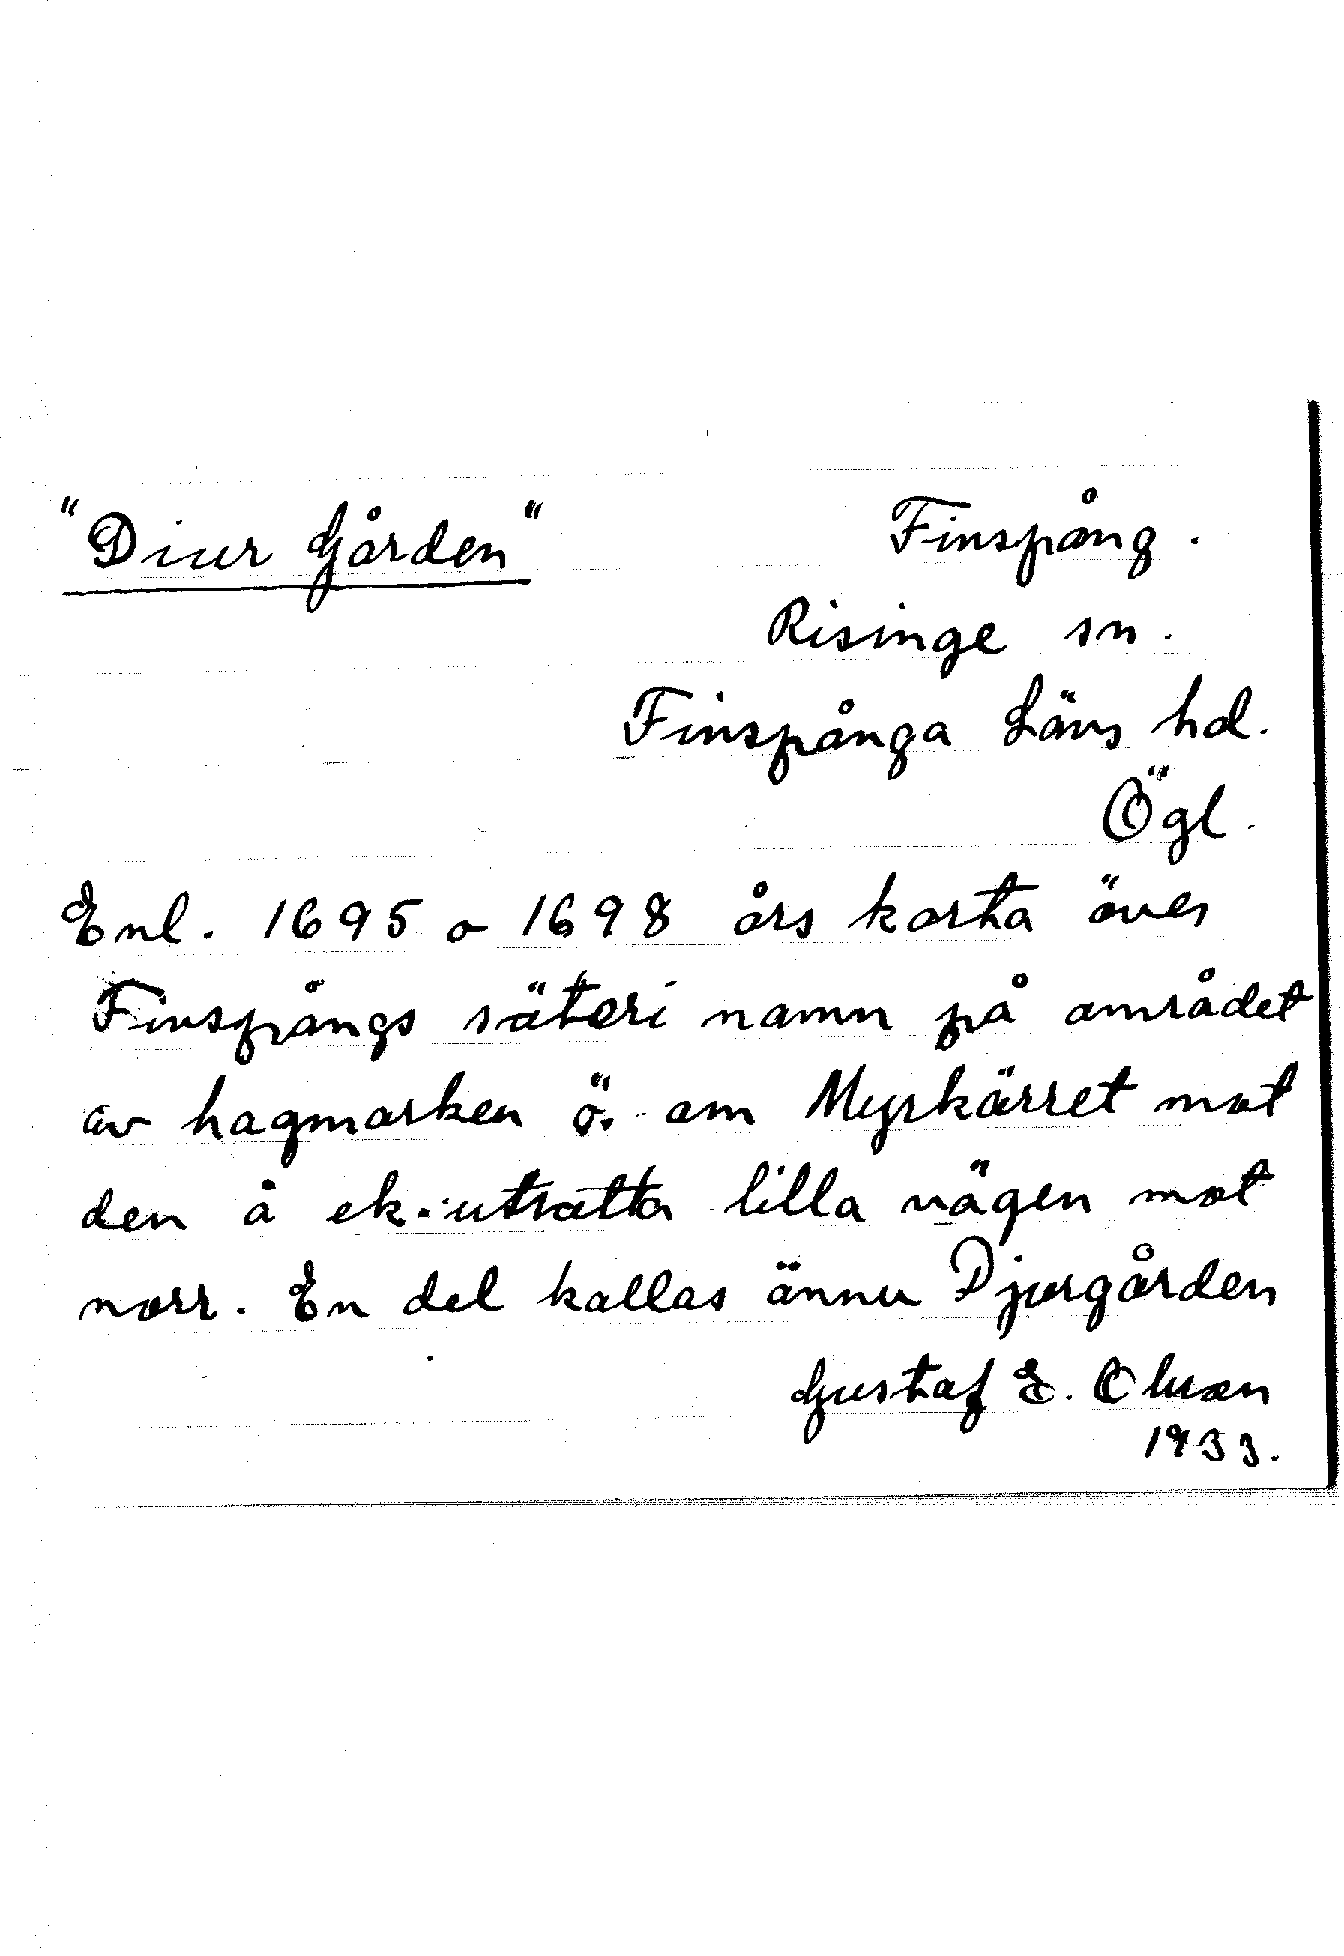 "Diur Gården"
Finspång.
Risinge sn.
Finspånga Läns hd.
Ögl.
Enl. 1695 o 1698 års karta över
Finspångs säteri namn på området
av hagmarken ö. om Myrkärret mot
den å ek. utsatta lilla vägen mot
norr. En del kallas ännu Djurgården
Gustaf E. Olsson
1933.